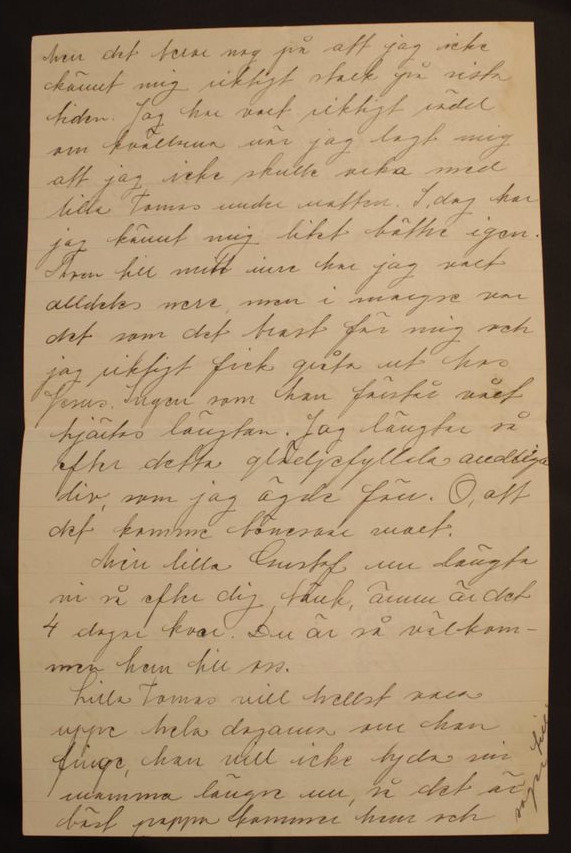 men det beror nog på att jag icke
känt mig riktigt stark på sista
tiden. Jag har varit riktigt rädd
om kvällarna när jag lagt mig
att jag icke skulle vara med
lilla Tomas under natten. I dag har
jag känt mig litet bättre igen.
Även till mitt inre har jag varit
alldeles nere, men i morgse var
det som det brast för mig och
jag riktigt fick gråta ut hos
Jesus. Ingen som han förstår vårt
hjärtas längtan. Jag längtar så
efter detta glädjefyllda andliga
liv, som jag ägde förr. O, att
det komme bönesvar snart.
Min lilla Gustaf nu längta
vi så efter dig, tänk, ännu är det
4 dagar kvar. Du är så välkom-
men hem till oss.
Lilla Tomas vill hellst vara
uppe hela dagarna om han
finge, han vill icke lyda sin
mamma längre nu, så det är
bäst pappa kommer hem och
säger till